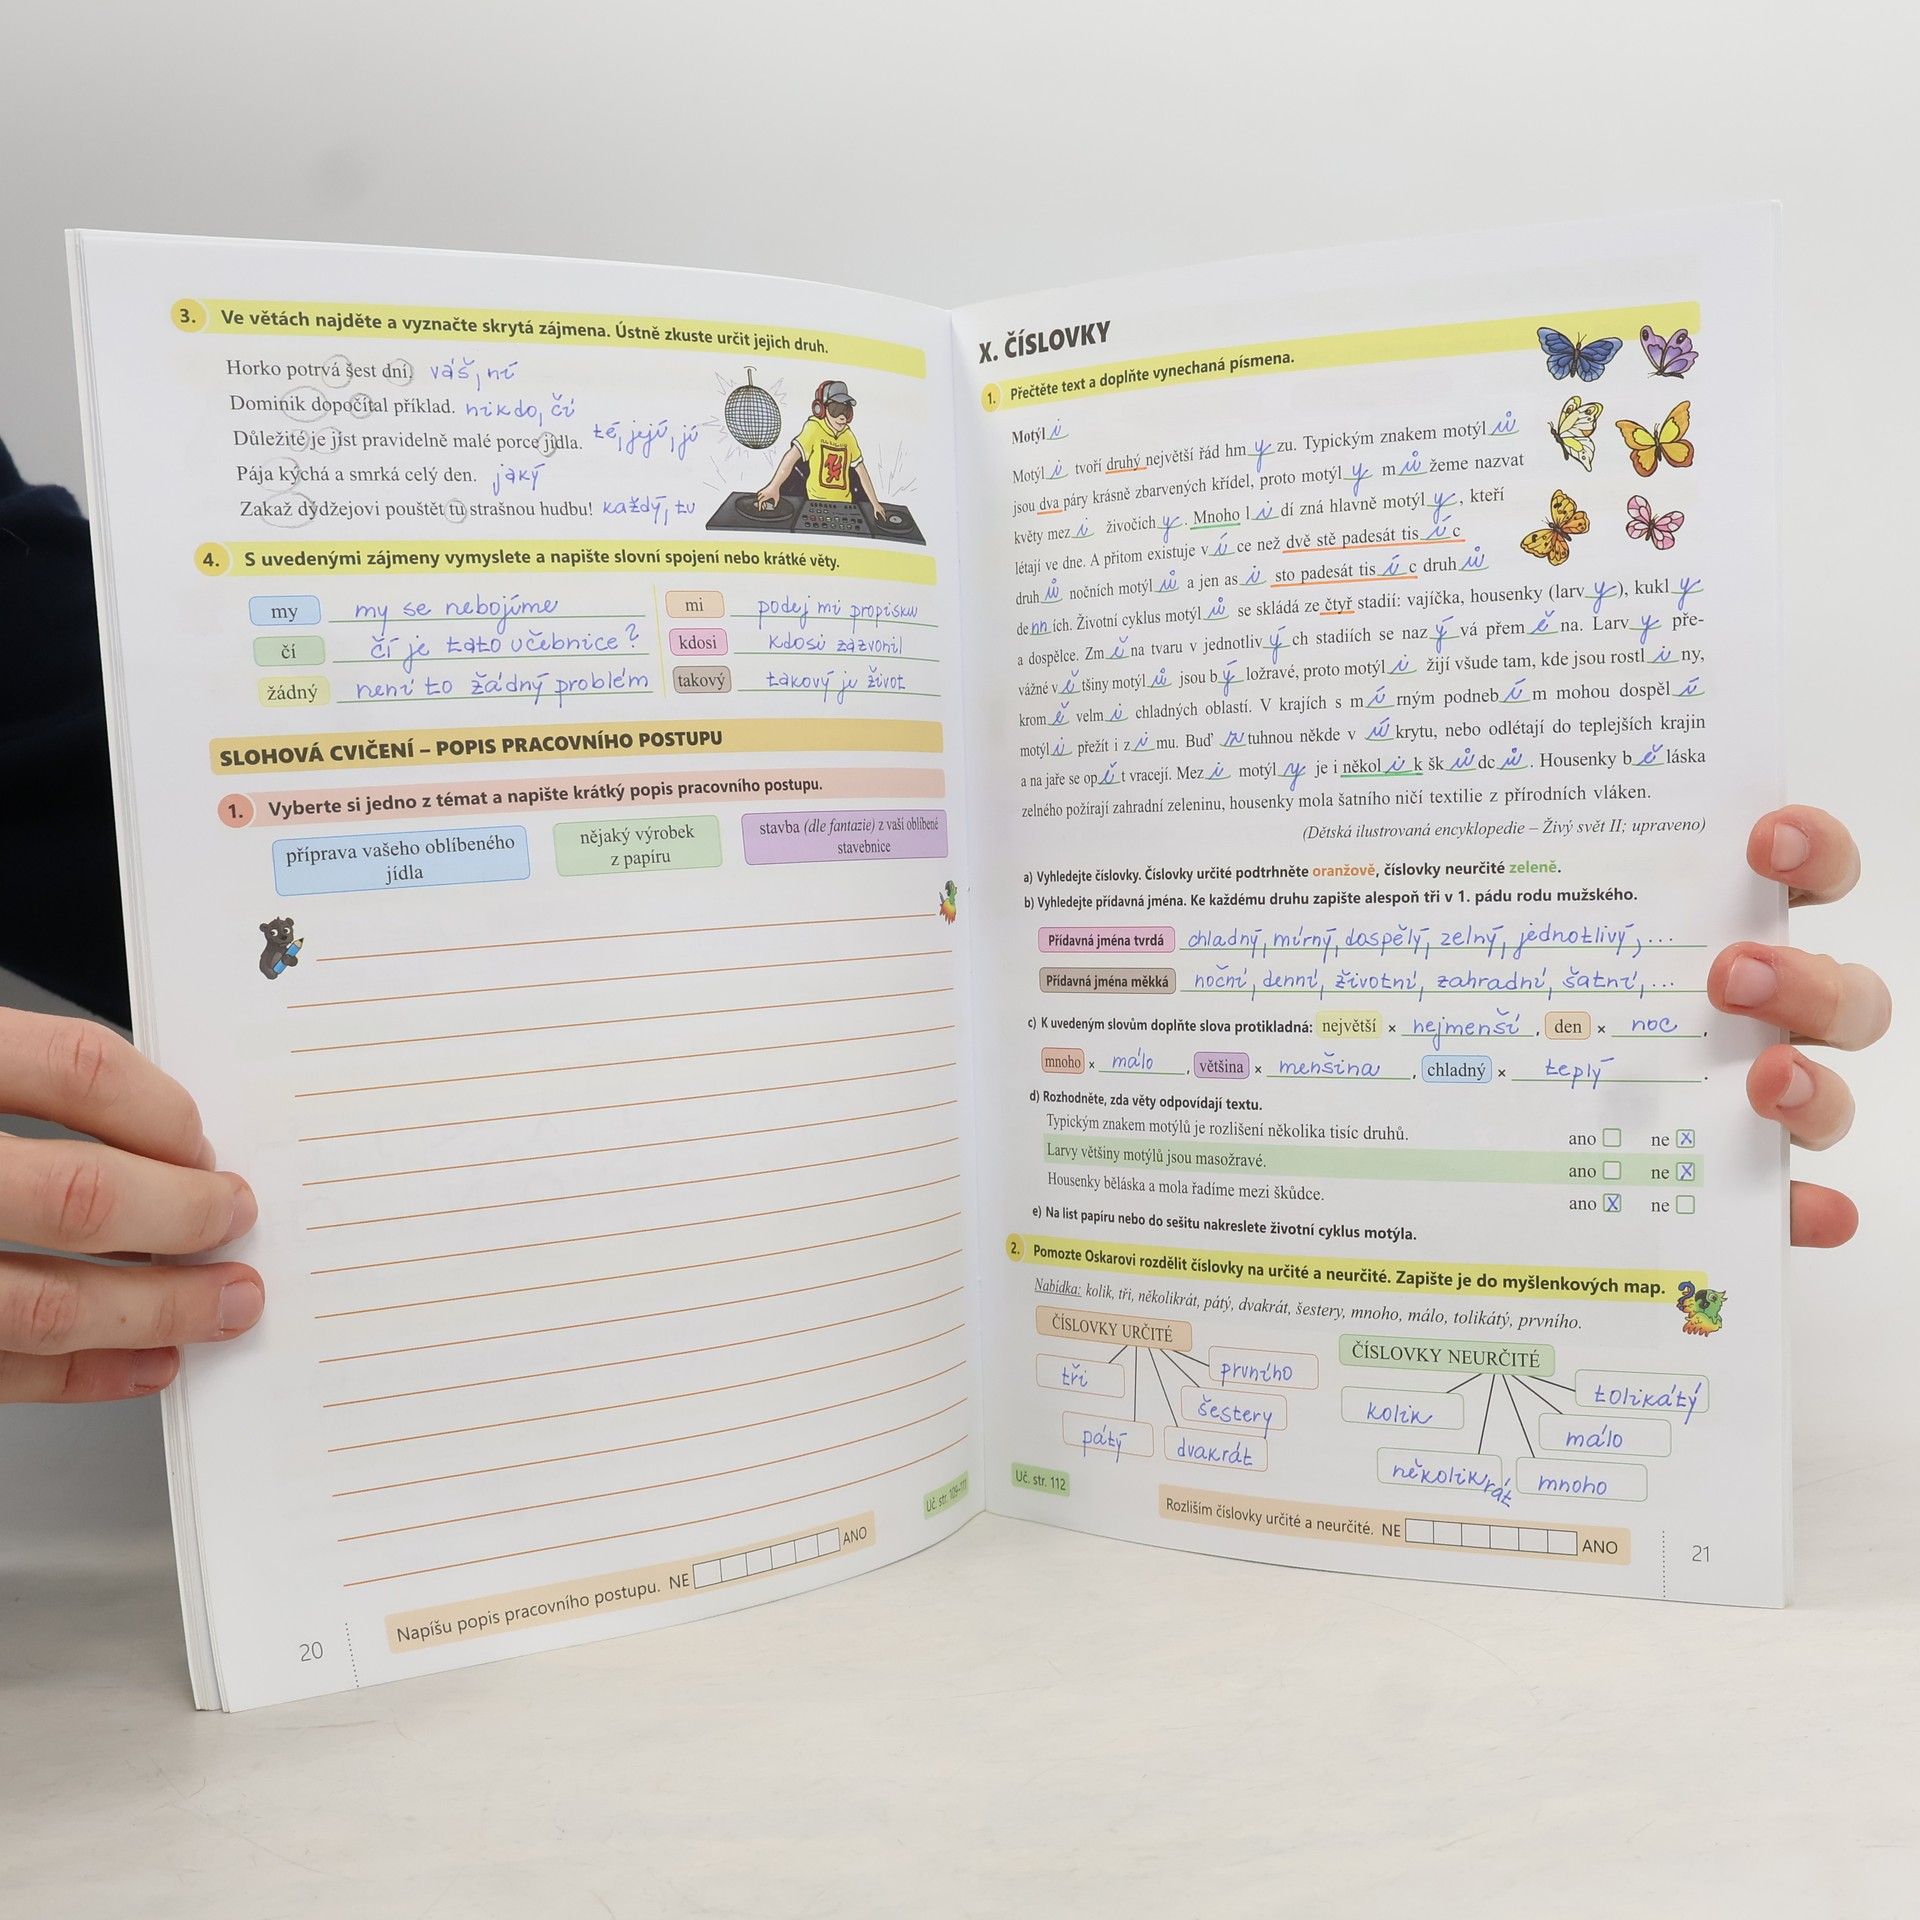 3. Ve větách najděte a vyznačte skrytá zájmena. Ústně zkuste určit jejich druh.
Horko potrvá šest dní. váš, ní
Dominik dopočítal příklad. nikdo, čí
Důležité je jíst pravidelně malé porce jídla. té, její, jí
Pája kýchá a smrká celý den. jaký
Zakaž dýdžejovi pouštět tu strašnou hudbu! každý, tu
4. S uvedenými zájmeny vymyslete a napište slovní spojení nebo krátké věty.
my my se nebojíme mi podej mi propisku
čí čí je tato učebnice? kdosi kdosi zazvonil
žádný není to žádný problém takový takový je život
SLOHOVÁ CVIČENÍ – POPIS PRACOVNÍHO POSTUPU
1. Vyberte si jedno z témat a napište krátký popis pracovního postupu.
příprava vašeho oblíbeného jídla
nějaký výrobek z papíru
stavba (dle fantazie) z vaší oblíbené stavebnice
Uč. str. 109–111
Napíšu popis pracovního postupu. NE ANO
20
X. ČÍSLOVKY
1. Přečtěte text a doplňte vynechaná písmena.
Motýl i
Motýl i tvoří druhý největší řád hm y zu. Typickým znakem motýl ů
jsou dva páry krásně zbarvených křídel, proto motýl y m ů žeme nazvat
květy mez i živočich y. Mnoho l i dí zná hlavně motýl y, kteří
létají ve dne. A přitom existuje v í ce než dvě stě padesát tis í c
druh ů nočních motýl ů a jen as i sto padesát tis í c druh ů
de nn ích. Životní cyklus motýl ů se skládá ze čtyř stadií: vajíčka, housenky (larv y), kukl y
a dospělce. Zm ě na tvaru v jednotliv ý ch stadiích se naz ý vá přem ě na. Larv y pře-
vážné v ě tšiny motýl ů jsou b ý ložravé, proto motýl i žijí všude tam, kde jsou rostl i ny,
krom ě velm i chladných oblastí. V krajích s m í rným podneb í m mohou dospěl í
motýl i přežít i z i mu. Buď z tuhnou někde v ú krytu, nebo odlétají do teplejších krajin
a na jaře se op ě t vracejí. Mez i motýl y je i někol i k šk ů dc ů. Housenky b ě láska
zelného požírají zahradní zeleninu, housenky mola šatního ničí textilie z přírodních vláken.
(Dětská ilustrovaná encyklopedie – Živý svět II; upraveno)
a) Vyhledejte číslovky. Číslovky určité podtrhněte oranžově, číslovky neurčité zeleně.
b) Vyhledejte přídavná jména. Ke každému druhu zapište alespoň tři v 1. pádu rodu mužského.
Přídavná jména tvrdá chladný, mírný, dospělý, zelný, jednotlivý, ...
Přídavná jména měkká noční, denní, životní, zahradní, šatní, ...
c) K uvedeným slovům doplňte slova protikladná: největší × nejmenší, den × noc,
mnoho × málo, většina × menšina, chladný × teplý.
d) Rozhodněte, zda věty odpovídají textu.
Typickým znakem motýlů je rozlišení několika tisíc druhů. ano ne X
Larvy většiny motýlů jsou masožravé. ano ne X
Housenky běláska a mola řadíme mezi škůdce. ano X ne
e) Na list papíru nebo do sešitu nakreslete životní cyklus motýla.
2. Pomozte Oskarovi rozdělit číslovky na určité a neurčité. Zapište je do myšlenkových map.
Nabídka: kolik, tři, několikrát, pátý, dvakrát, šestery, mnoho, málo, tolikátý, prvního.
ČÍSLOVKY URČITÉ
tři
prvního
šestery
pátý
dvakrát
ČÍSLOVKY NEURČITÉ
kolik
tolikátý
málo
několikrát
mnoho
Uč. str. 112
Rozliším číslovky určité a neurčité. NE ANO
21